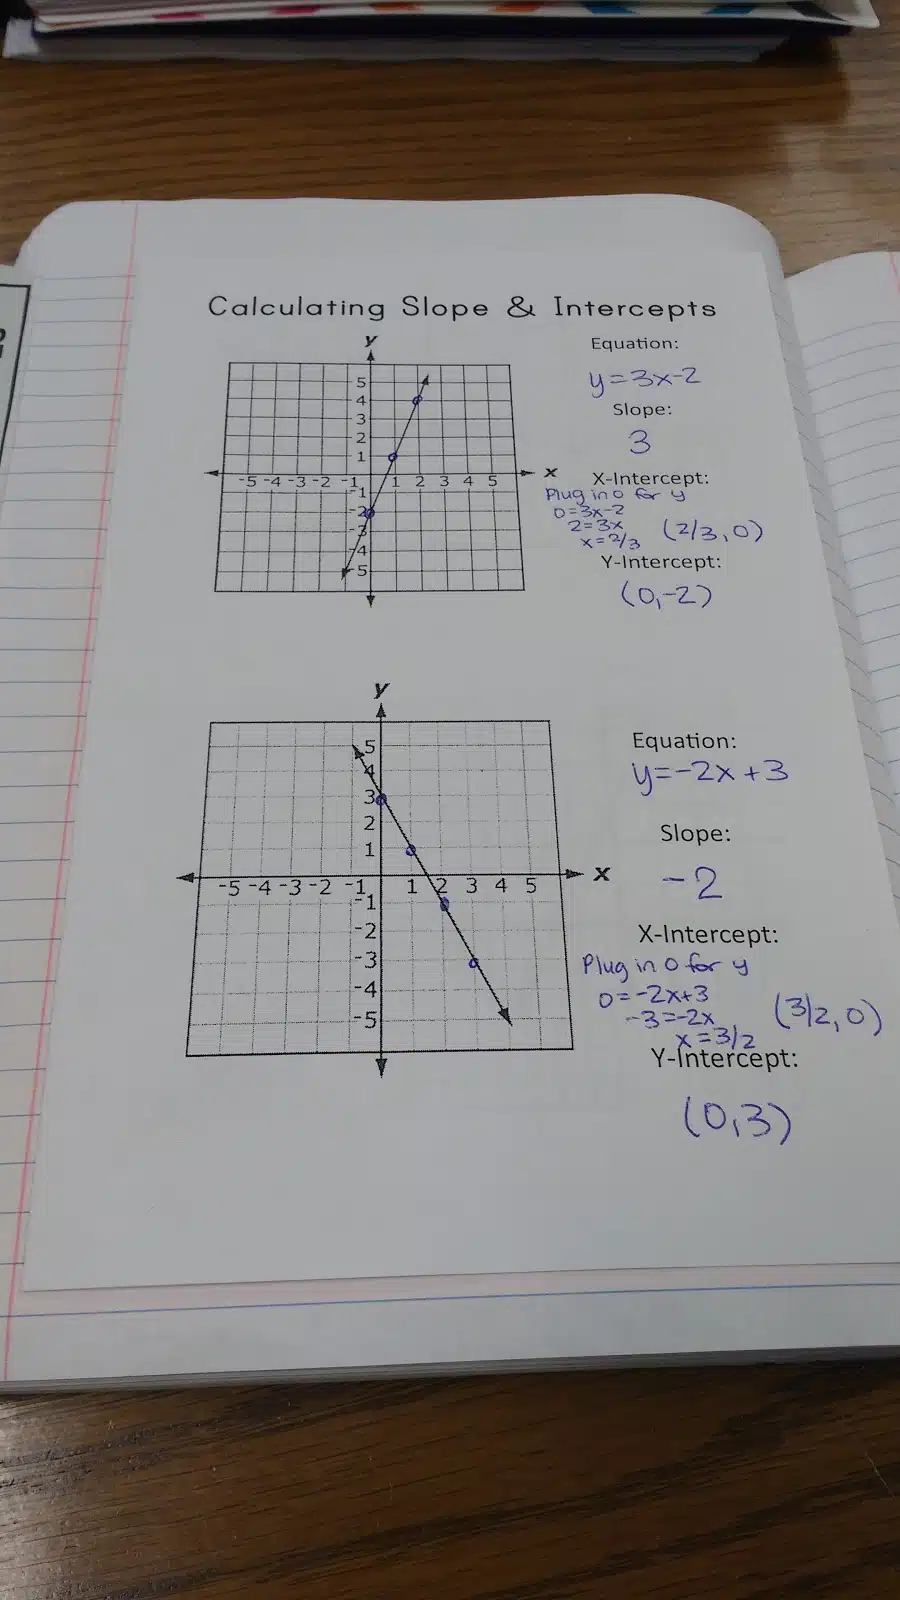 Calculating Slope & Intercepts
y
5
4
3
2
1
-5 -4 -3 -2 -1 1 2 3 4 5 x
-1
-2
-3
-4
-5
Equation:
y=3x-2
Slope:
3
X-Intercept:
Plug in 0 for y
0=3x-2
2=3x
x=2/3 (2/3, 0)
Y-Intercept:
(0,-2)
y
5
4
3
2
1
-5 -4 -3 -2 -1 1 2 3 4 5 x
-1
-2
-3
-4
-5
Equation:
y=-2x+3
Slope:
-2
X-Intercept:
Plug in 0 for y
0=-2x+3
-3=-2x (3/2, 0)
x=3/2
Y-Intercept:
(0,3)